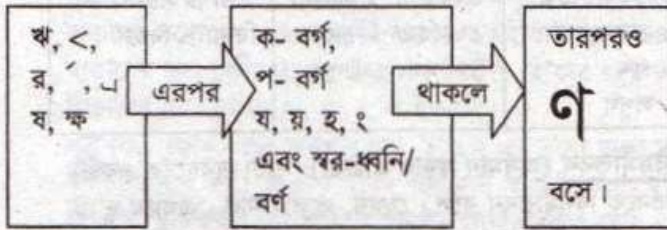 ঋ, ৃ,
র, র্, ্র
ষ, ক্ষ
এরপর
ক- বর্গ,
প- বর্গ
য, য়, হ, ং
এবং স্বর-ধ্বনি/
বর্ণ
থাকলে
তারপরও
ণ
বসে।